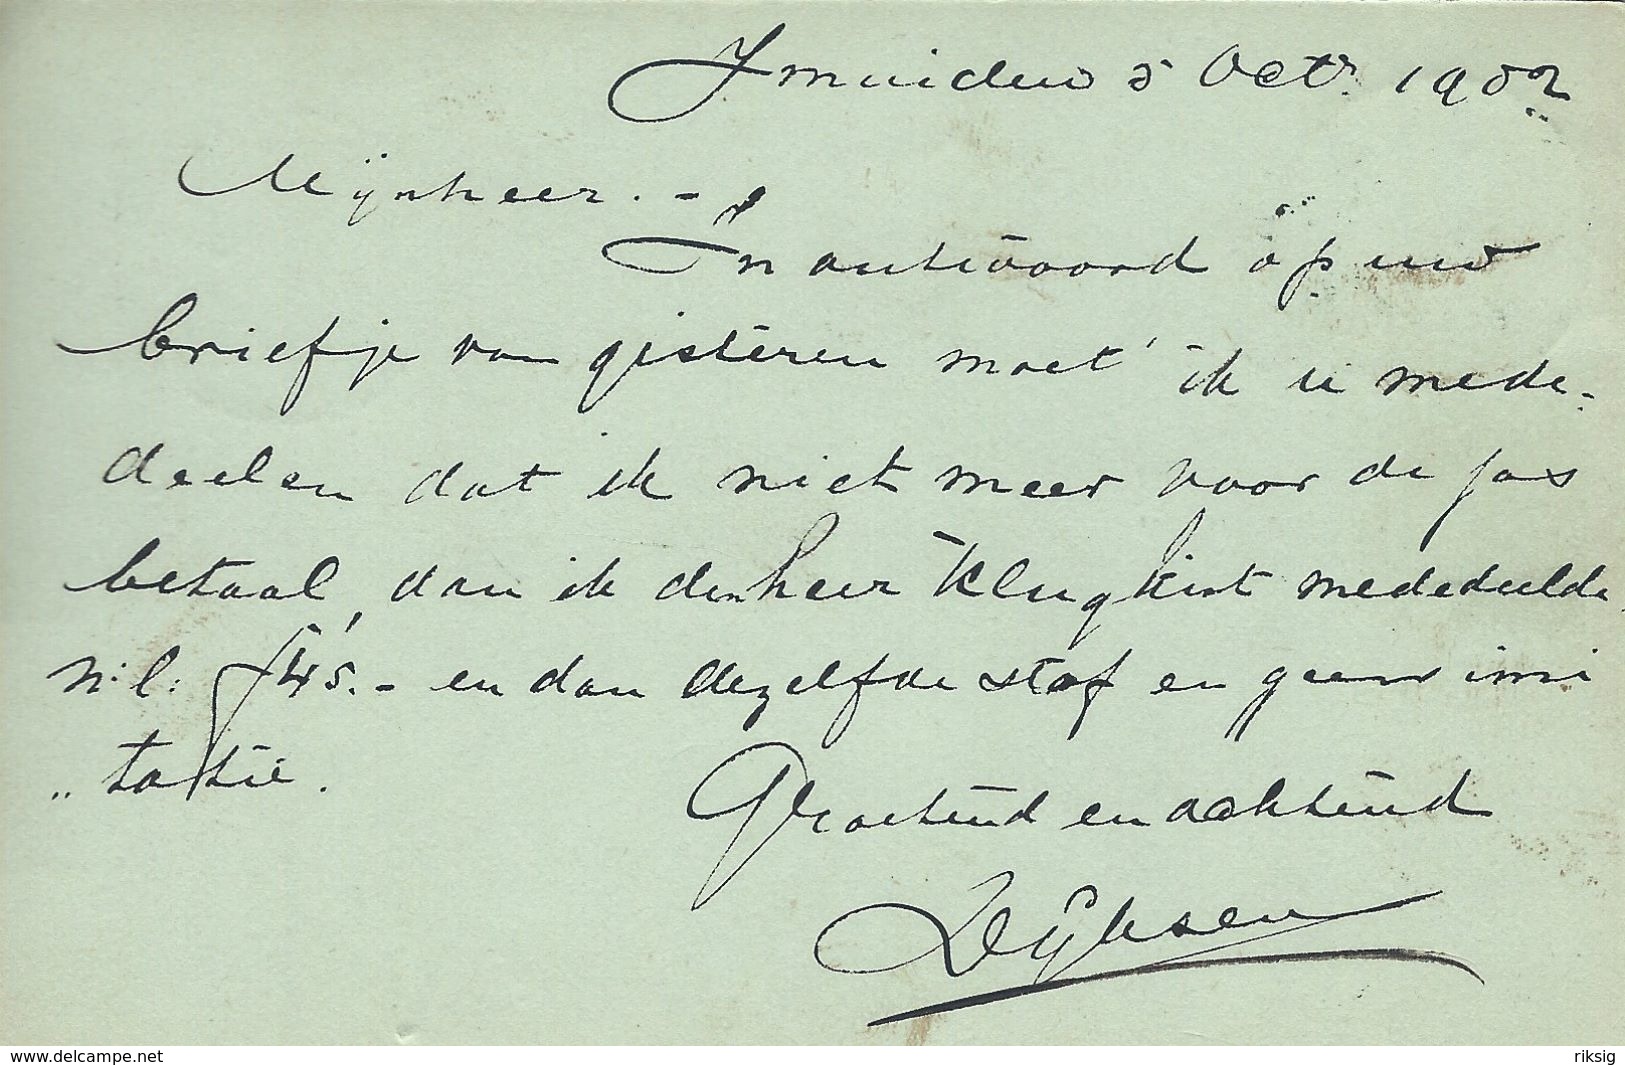 Ymuiden 5 Octr. 1902
Mijnheer. -
In antwoord op uw
briefje van gisteren moet ik u mede-
deelen dat ik niet meer voor de jas
betaal, dan ik den heer Klugkist mededeelde
n.l: f45.- en dan dezelfde stof en geen imi
„tatie.
Groetend en achtend
www.delcampe.net
riksig